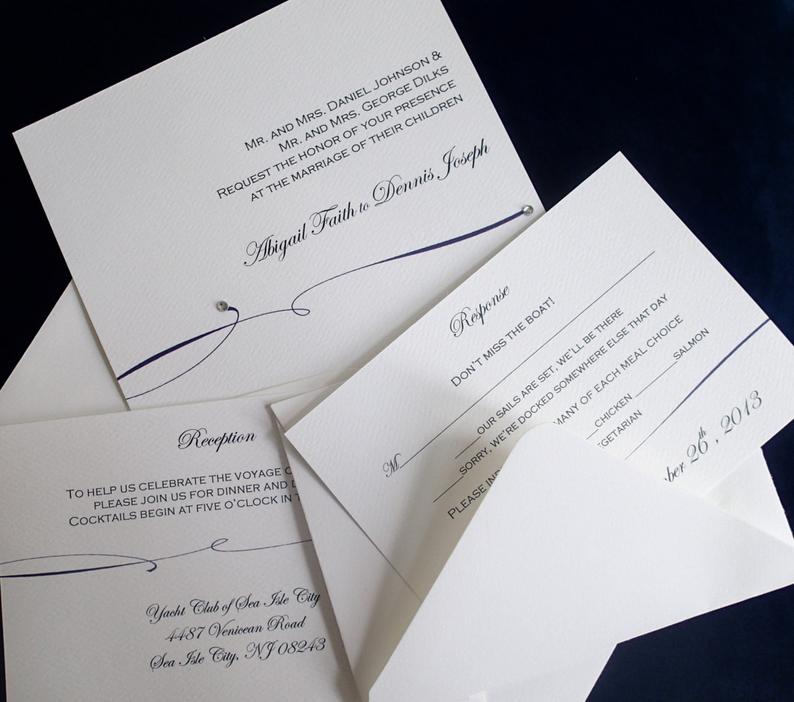 Mr. and Mrs. Daniel Johnson &
Mr. and Mrs. George Dilks
Request the honor of your presence
at the marriage of their children
Abigail Faith to Dennis Joseph
Response
Don't miss the boat!
M
our sails are set, we'll be there
sorry, we're docked somewhere else that day
Please many of each meal choice
chicken salmon
26th, 2013
Reception
To help us celebrate the voyage
please join us for dinner and
Cocktails begin at five o'clock in
Yacht Club of Sea Isle City
4487 Venicean Road
Sea Isle City, NJ 08243